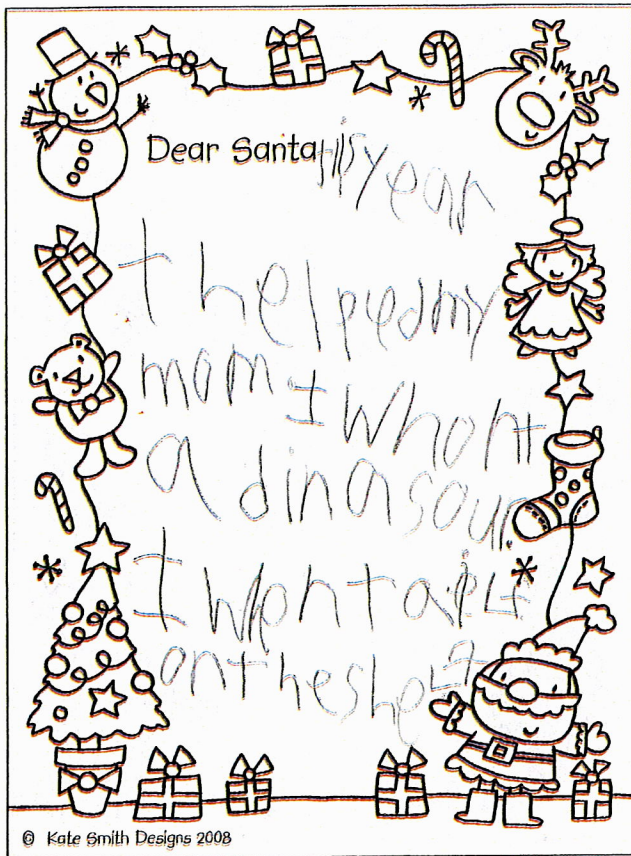 Dear Santa this year
I helped my
mom I whont
a dinasour.
I whont a
on the shelf
© Kate Smith Designs 2008